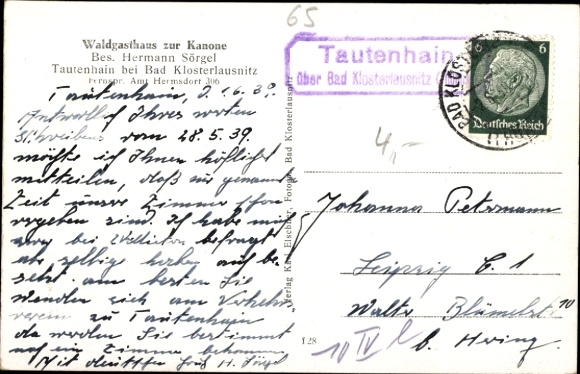 65
Waldgasthaus zur Kanone
Bes. Hermann Sörgel
Tautenhain bei Bad Klosterlausnitz
Fernspr. Amt Hermsdorf 306
Tautenhain
über Bad Klosterlausnitz
6 6
Deutsches Reich
BAD KLOSTER
4,-
Tautenhain, d. 1.6.39.
Antwortl. Ihres werten
Schreibens vom 28.5.39.
möchte ich Ihnen höflichst
mitteilen, daß zur genannten
Zeit unsre Zimmer schon
vergeben sind. Ich habe mich
bei befragt
selbige haben auch be-
setzt. am besten Sie
wenden sich am Verkehrs
verein zu Tautenhain
da werden Sie bestimmt
noch ein Zimmer bekommen
Mit deutschem Gruß H. Sörgel
Verlag Karl Elschner, Fotogr., Bad Klosterlausnitz
128
Johanna Petermann
Leipzig C. 1
Walter Blümelstr 10
b. Hering.
10 IV l